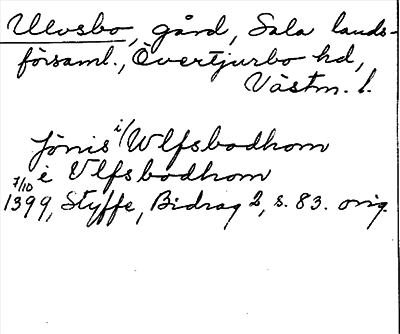 Ulvsbo, gård, Sala lands-
församl., Övertjurbo hd,
Västm. l.
Jönis i/Wlfsbodhom
i Vlfsbodhom
7/10 1399, Styffe, Bidrag 2, s. 83. orig.